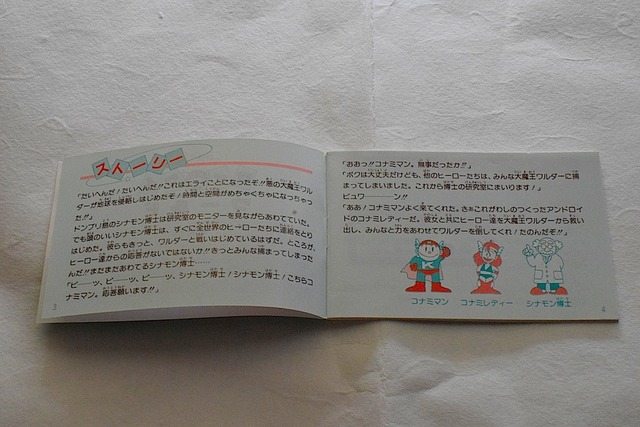 ストーリー
「たいへんだ!たいへんだ!!これはエライことになったぞ!!悪の大魔王ワル
ダーが地球を侵略しはじめたぞ!時間と空間がめちゃくちゃになっちゃっ
た!!」
ドンブリ島のシナモン博士は研究室のモニターを見ながらあわてていた。
でも頭のいいシナモン博士は、すぐに全世界のヒーローたちに連絡をとり
はじめた。彼らもきっと、ワルダーと戦いはじめているはずだ。ところが、
ヒーロー達からの応答がないではないか!!きっとみんな捕まってしまった
んだ!!まだまだあわてるシナモン博士……
「ピーッ、ピーッ、ピーッ、シナモン博士!シナモン博士!こちらコ
ナミマン。応答願います!!」
3
「おおっ!!コナミマン。無事だったか!!」
「ボクは大丈夫だけども、他のヒーローたちは、みんな大魔王ワルダーに捕
まってしまいました。これから博士の研究室にまいります!」
ピュワーーーン!!
「ああ!コナミマンよく来てくれた。これがわしのつくったアンドロイ
ドのコナミレディーだ。彼女と共にヒーロー達を大魔王ワルダーから救い
出し、みんなと力をあわせてワルダーを倒してくれ!たのんだぞ!!」
コナミマン コナミレディー シナモン博士
4